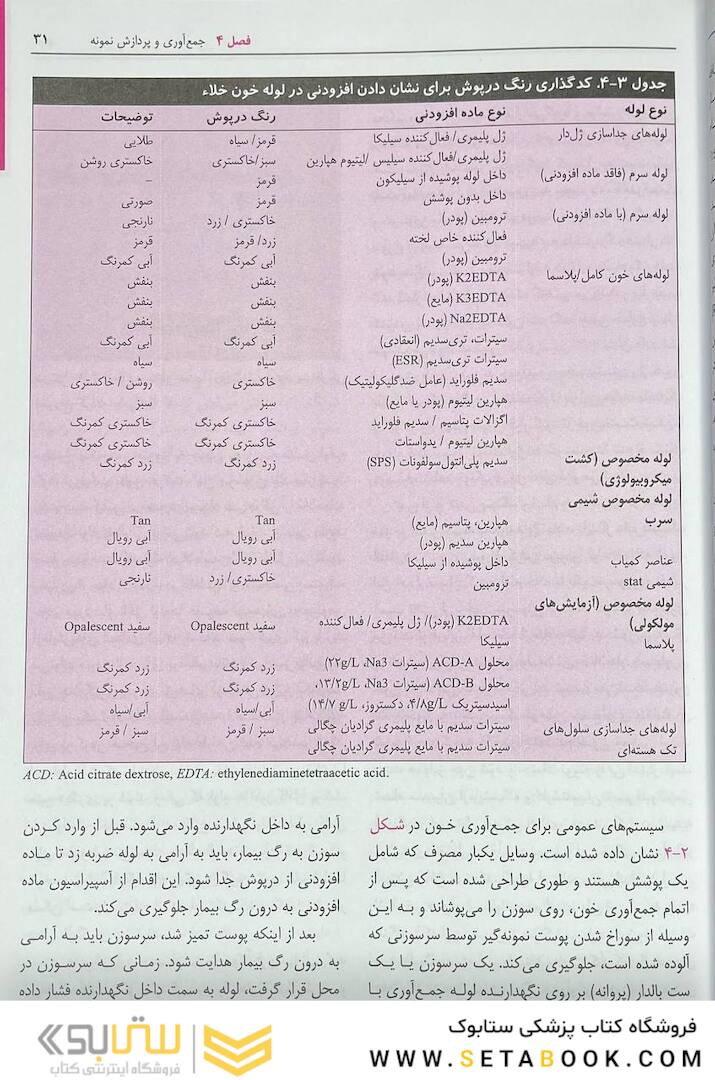 فصل ۴ جمع‌آوری و پردازش نمونه ۳۱
جدول ۳-۴. کدگذاری رنگ درپوش برای نشان دادن افزودنی در لوله خون خلاء
نوع لوله نوع ماده افزودنی رنگ درپوش توضیحات
لوله‌های جداسازی ژل‌دار ژل پلیمری/ فعال‌کننده سیلیکا قرمز/ سیاه طلایی
ژل پلیمری/فعال‌کننده سیلیس /لیتیوم هپارین سبز/خاکستری خاکستری روشن
لوله سرم (فاقد ماده افزودنی) داخل لوله پوشیده از سیلیکون قرمز –
داخل بدون پوشش قرمز صورتی
لوله سرم (با ماده افزودنی) ترومبین (پودر) خاکستری / زرد نارنجی
فعال‌کننده خاص لخته زرد/ قرمز قرمز
ترومبین (پودر) آبی کمرنگ آبی کمرنگ
لوله‌های خون کامل/پلاسما K2EDTA (پودر) بنفش بنفش
K3EDTA (مایع) بنفش بنفش
Na2EDTA (پودر) بنفش بنفش
سیترات، تری‌سدیم (انعقادی) آبی کمرنگ آبی کمرنگ
سیترات تری‌سدیم (ESR) سیاه سیاه
سدیم فلوراید (عامل ضدگلیکولیتیک) خاکستری روشن / خاکستری
هپارین لیتیوم (پودر یا مایع) سبز سبز
اگزالات پتاسیم / سدیم فلوراید خاکستری کمرنگ خاکستری کمرنگ
هپارین لیتیوم / یدواستات خاکستری کمرنگ خاکستری کمرنگ
لوله مخصوص (کشت سدیم پلی‌انتول‌سولفونات (SPS) زرد کمرنگ زرد کمرنگ
میکروبیولوژی)
لوله مخصوص شیمی
سرب هپارین، پتاسیم (مایع) Tan Tan
هپارین سدیم (پودر) آبی رویال آبی رویال
عناصر کمیاب داخل پوشیده از سیلیکا آبی رویال آبی رویال
شیمی stat ترومبین خاکستری/ زرد نارنجی
لوله مخصوص (آزمایش‌های
مولکولی) K2EDTA (پودر)/ ژل پلیمری/ فعال‌کننده سفید Opalescent سفید Opalescent
پلاسما سیلیکا
محلول ACD-A (سیترات Na3، ۲۲g/L) زرد کمرنگ زرد کمرنگ
محلول ACD-B (سیترات Na3، ۱۳/۲g/L، زرد کمرنگ زرد کمرنگ
اسیدسیتریک ۴/۸g/L، دکستروز، ۱۴/۷ g/L) آبی/سیاه آبی/سیاه
لوله‌های جداسازی سلول‌های سیترات سدیم با مایع پلیمری گرادیان چگالی سبز / قرمز سبز / قرمز
تک هسته‌ای سیترات سدیم با مایع پلیمری گرادیان چگالی
ACD: Acid citrate dextrose, EDTA: ethylenediaminetetraacetic acid.
سیستم‌های عمومی برای جمع‌آوری خون در شکل
۲-۴ نشان داده شده است. وسایل یکبار مصرف که شامل
یک پوشش هستند و طوری طراحی شده است که پس از
اتمام جمع‌آوری خون، روی سوزن را می‌پوشاند و به این
وسیله از سوراخ شدن پوست نمونه‌گیر توسط سرسوزنی که
آلوده شده است، جلوگیری می‌کند. یک سرسوزن یا یک
ست بالدار (پروانه) بر روی نگهدارنده لوله جمع‌آوری با
آرامی به داخل نگهدارنده وارد می‌شود. قبل از وارد کردن
سوزن به رگ بیمار، باید به آرامی به لوله ضربه زد تا ماده
افزودنی از درپوش جدا شود. این اقدام از آسپیراسیون ماده
افزودنی به درون رگ بیمار جلوگیری می‌کند.
بعد از اینکه پوست تمیز شد، سرسوزن باید به آرامی
به درون رگ بیمار هدایت شود. زمانی که سرسوزن در
محل قرار گرفت، لوله به سمت داخل نگهدارنده فشار داده
فروشگاه کتاب پزشکی ستابوک
WWW.SETABOOK.COM
ستابوک
فروشگاه اینترنتی کتاب